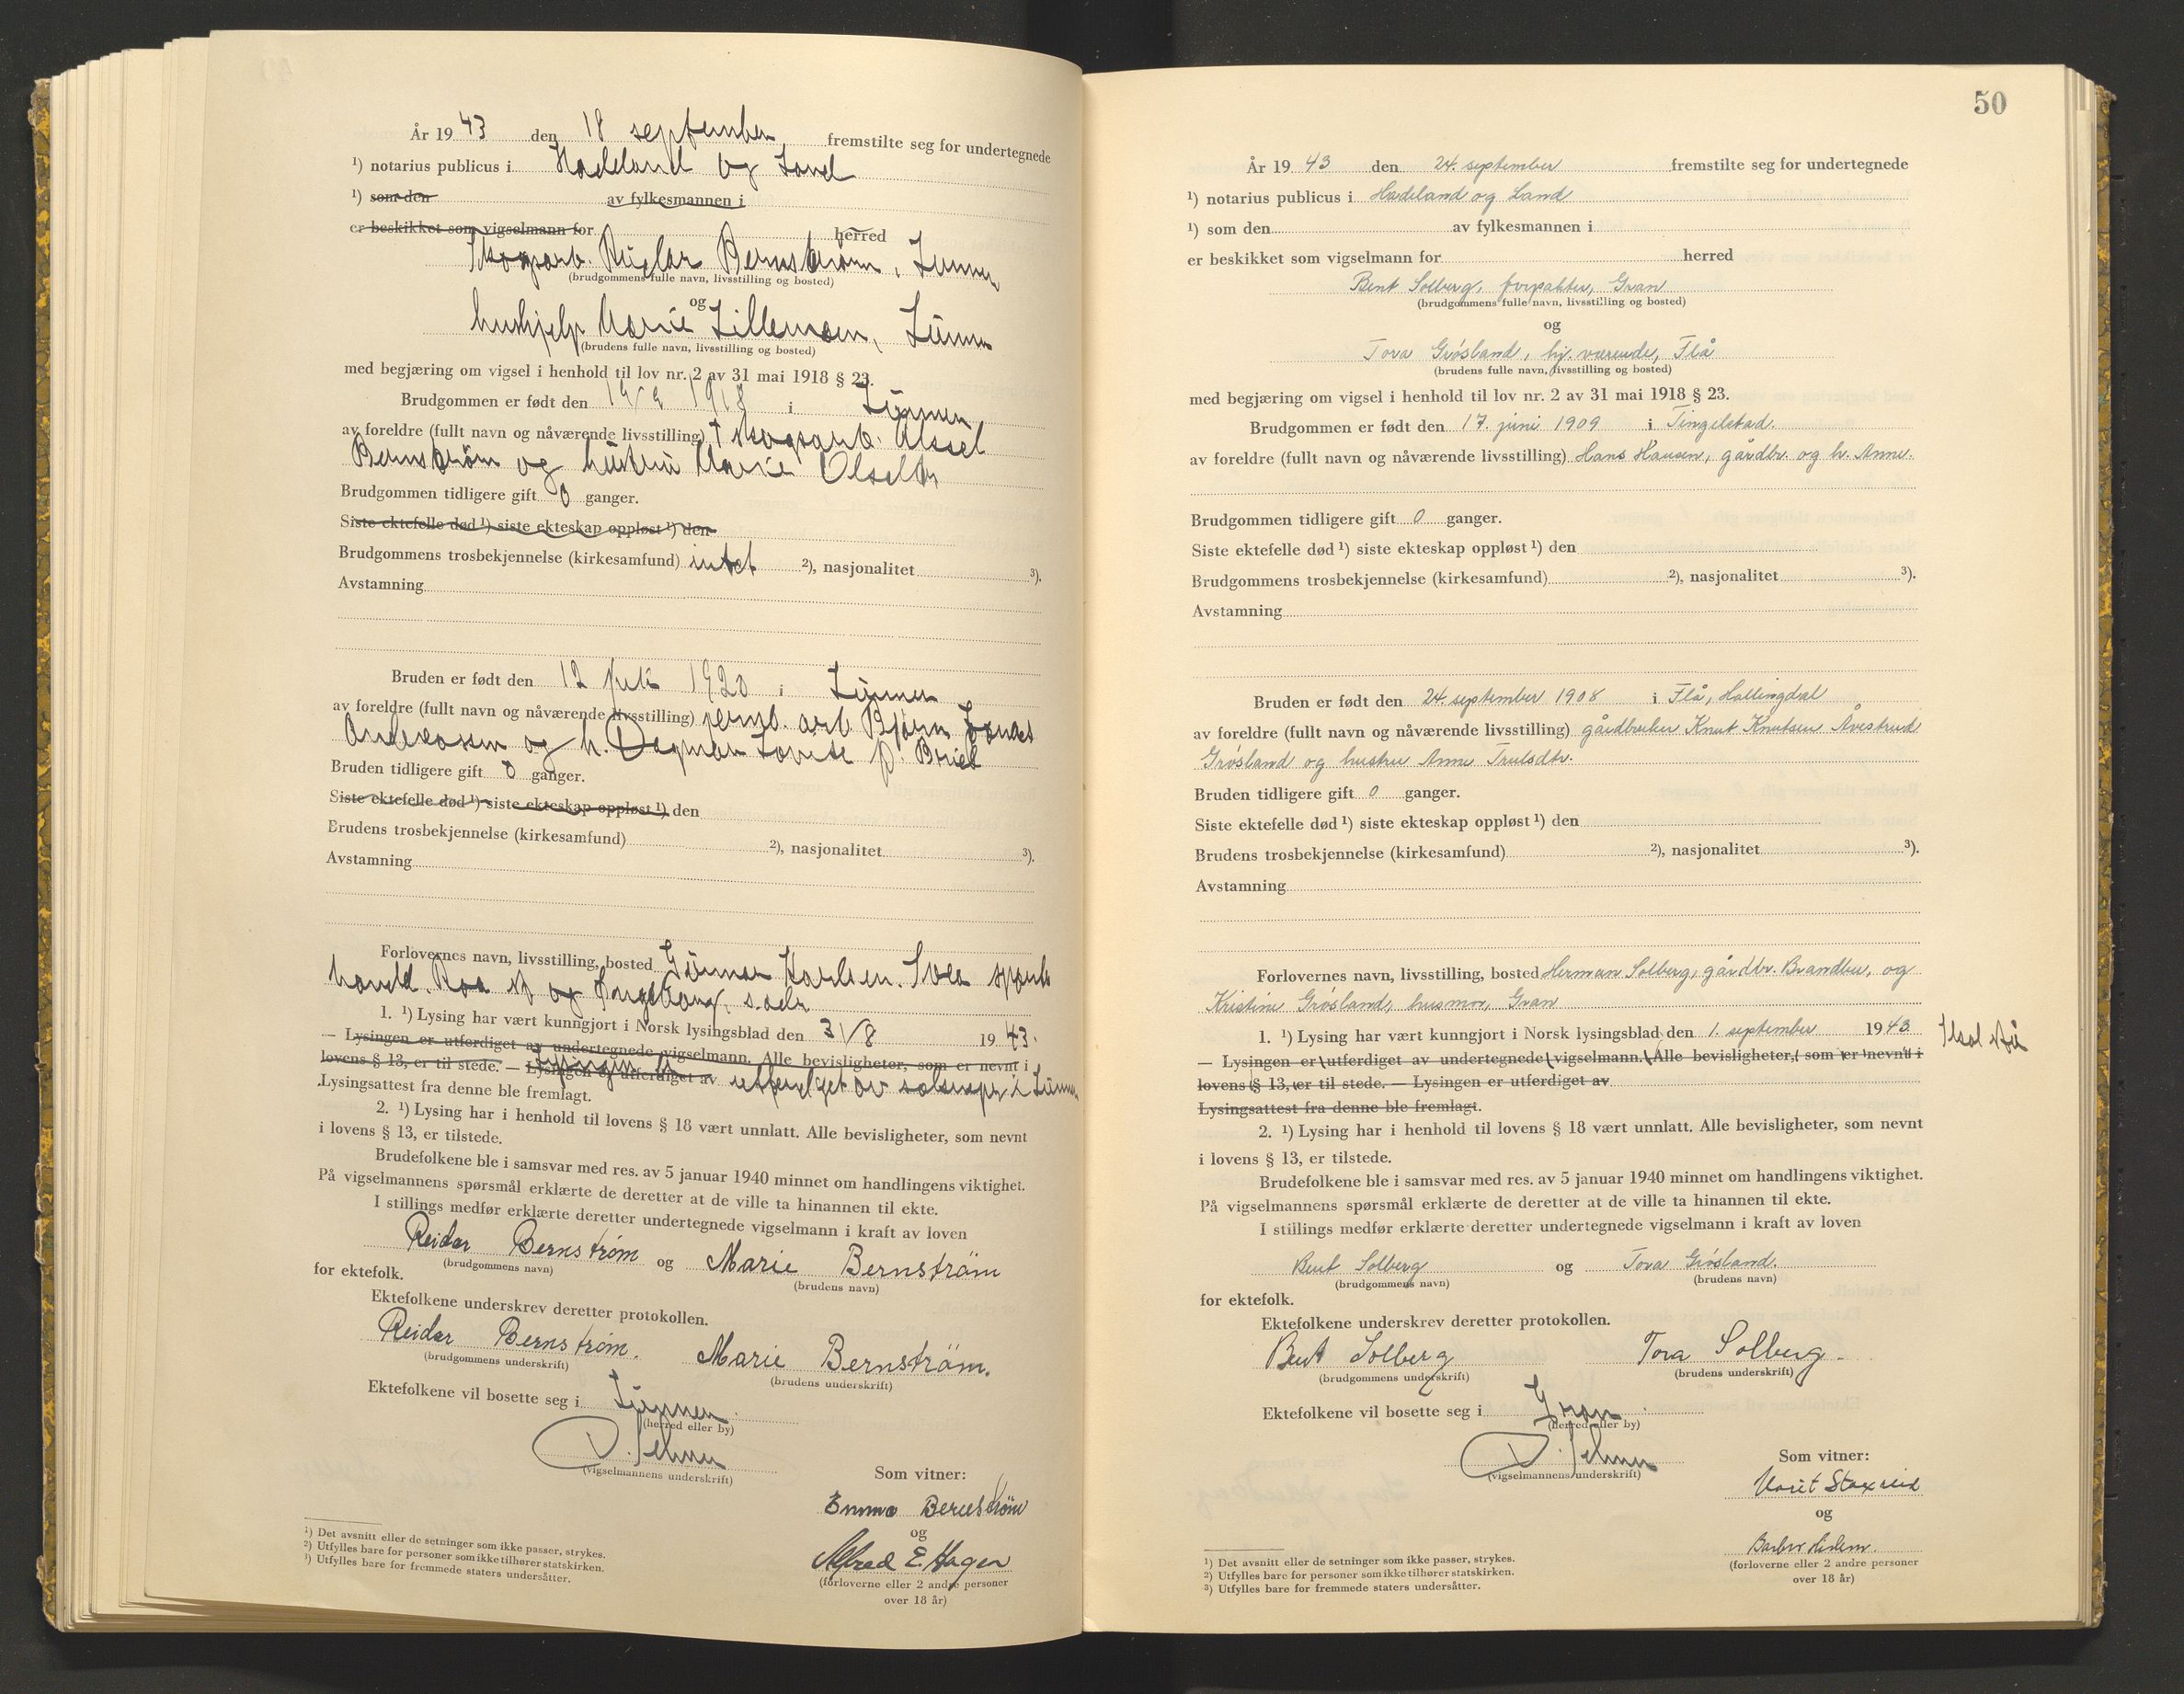 År 1943 den 18 september fremstilte seg for undertegnede
¹) notarius publicus i Hadeland og Land
¹) som den av fylkesmannen i
er beskikket som vigselmann for herred
Skogsarb. Reidar Bernström, Lunner
(brudgommens fulle navn, livsstilling og bosted)
og
hushjelp Marie Lillemoen, Lunner
(brudens fulle navn, livsstilling og bosted)
med begjæring om vigsel i henhold til lov nr. 2 av 31 mai 1918 § 23.
Brudgommen er født den 1918 i Lunner
av foreldre (fullt navn og nåværende livsstilling) † skogsarb. Aksel
Bernström og hustru Marie
Brudgommen tidligere gift 0 ganger.
Siste ektefelle død ¹) siste ekteskap oppløst ¹) den
Brudgommens trosbekjennelse (kirkesamfund) intet ²), nasjonalitet ³).
Avstamning
Bruden er født den 12 1920 i Lunner
av foreldre (fullt navn og nåværende livsstilling) arb. Bjarne
Andreassen og h. Dagmar Lovise
Bruden tidligere gift 0 ganger.
Siste ektefelle død ¹) siste ekteskap oppløst ¹) den
Brudens trosbekjennelse (kirkesamfund) ²), nasjonalitet ³).
Avstamning
Forlovernes navn, livsstilling, bosted Gunnar Karlsen.
Roa og
1. ¹) Lysing har vært kunngjort i Norsk lysingsblad den 31/8 1943.
— Lysingen er utferdiget av undertegnede vigselmann. Alle bevisligheter, som er nevnt i
lovens § 13, er til stede. — Lysingen er utferdiget av utferdiget av i Lunner
Lysingsattest fra denne ble fremlagt.
2. ¹) Lysing har i henhold til lovens § 18 vært unnlatt. Alle bevisligheter, som nevnt
i lovens § 13, er tilstede.
Brudefolkene ble i samsvar med res. av 5 januar 1940 minnet om handlingens viktighet.
På vigselmannens spørsmål erklærte de deretter at de ville ta hinannen til ekte.
I stillings medfør erklærte deretter undertegnede vigselmann i kraft av loven
Reidar Bernstrøm og Marie Bernström
(brudgommens navn) (brudens navn)
for ektefolk.
Ektefolkene underskrev deretter protokollen.
Reidar Bernstrøm. Marie Bernström.
(brudgommens underskrift) (brudens underskrift)
Ektefolkene vil bosette seg i Lunner
(herred eller by)
(vigselmannens underskrift)
Som vitner:
Emma Bernström
og
Alfred E. Hagen
(forloverne eller 2 andre personer
over 18 år)
¹) Det avsnitt eller de setninger som ikke passer, strykes.
²) Utfylles bare for personer som ikke tilhører statskirken.
³) Utfylles bare for fremmede staters undersåtter.
50
År 1943 den 24. september fremstilte seg for undertegnede
¹) notarius publicus i Hadeland og Land
¹) som den av fylkesmannen i
er beskikket som vigselmann for herred
Bent Solberg, forpakter, Gran
(brudgommens fulle navn, livsstilling og bosted)
og
Tora Grøsland, hj. værende, Flå
(brudens fulle navn, livsstilling og bosted)
med begjæring om vigsel i henhold til lov nr. 2 av 31 mai 1918 § 23.
Brudgommen er født den 17. juni 1909 i Tingelstad.
av foreldre (fullt navn og nåværende livsstilling) Hans Hansen, gårdbr. og h. Anne.
Brudgommen tidligere gift 0 ganger.
Siste ektefelle død ¹) siste ekteskap oppløst ¹) den
Brudgommens trosbekjennelse (kirkesamfund) ²), nasjonalitet ³).
Avstamning
Bruden er født den 24. september 1908 i Flå, Hallingdal
av foreldre (fullt navn og nåværende livsstilling) gårdbruker Knut Knutsen Åvestrud
Grøsland og hustru Anne Trulsdtr.
Bruden tidligere gift 0 ganger.
Siste ektefelle død ¹) siste ekteskap oppløst ¹) den
Brudens trosbekjennelse (kirkesamfund) ²), nasjonalitet ³).
Avstamning
Forlovernes navn, livsstilling, bosted Herman Solberg, gårdbr. Brandbu, og
Kristine Grøsland, husmor, Gran
1. ¹) Lysing har vært kunngjort i Norsk lysingsblad den 1. september 1943
— Lysingen er utferdiget av undertegnede vigselmann. Alle bevisligheter, som er nevnt i
lovens § 13, er til stede. — Lysingen er utferdiget av
Lysingsattest fra denne ble fremlagt.
2. ¹) Lysing har i henhold til lovens § 18 vært unnlatt. Alle bevisligheter, som nevnt
i lovens § 13, er tilstede.
Brudefolkene ble i samsvar med res. av 5 januar 1940 minnet om handlingens viktighet.
På vigselmannens spørsmål erklærte de deretter at de ville ta hinannen til ekte.
I stillings medfør erklærte deretter undertegnede vigselmann i kraft av loven
Bent Solberg og Tora Grøsland.
(brudgommens navn) (brudens navn)
for ektefolk.
Ektefolkene underskrev deretter protokollen.
Bent Solberg Tora Solberg.
(brudgommens underskrift) (brudens underskrift)
Ektefolkene vil bosette seg i Gran
(herred eller by)
(vigselmannens underskrift)
Som vitner:
Marit Staxrud
og
(forloverne eller 2 andre personer
over 18 år)
¹) Det avsnitt eller de setninger som ikke passer, strykes.
²) Utfylles bare for personer som ikke tilhører statskirken.
³) Utfylles bare for fremmede staters undersåtter.